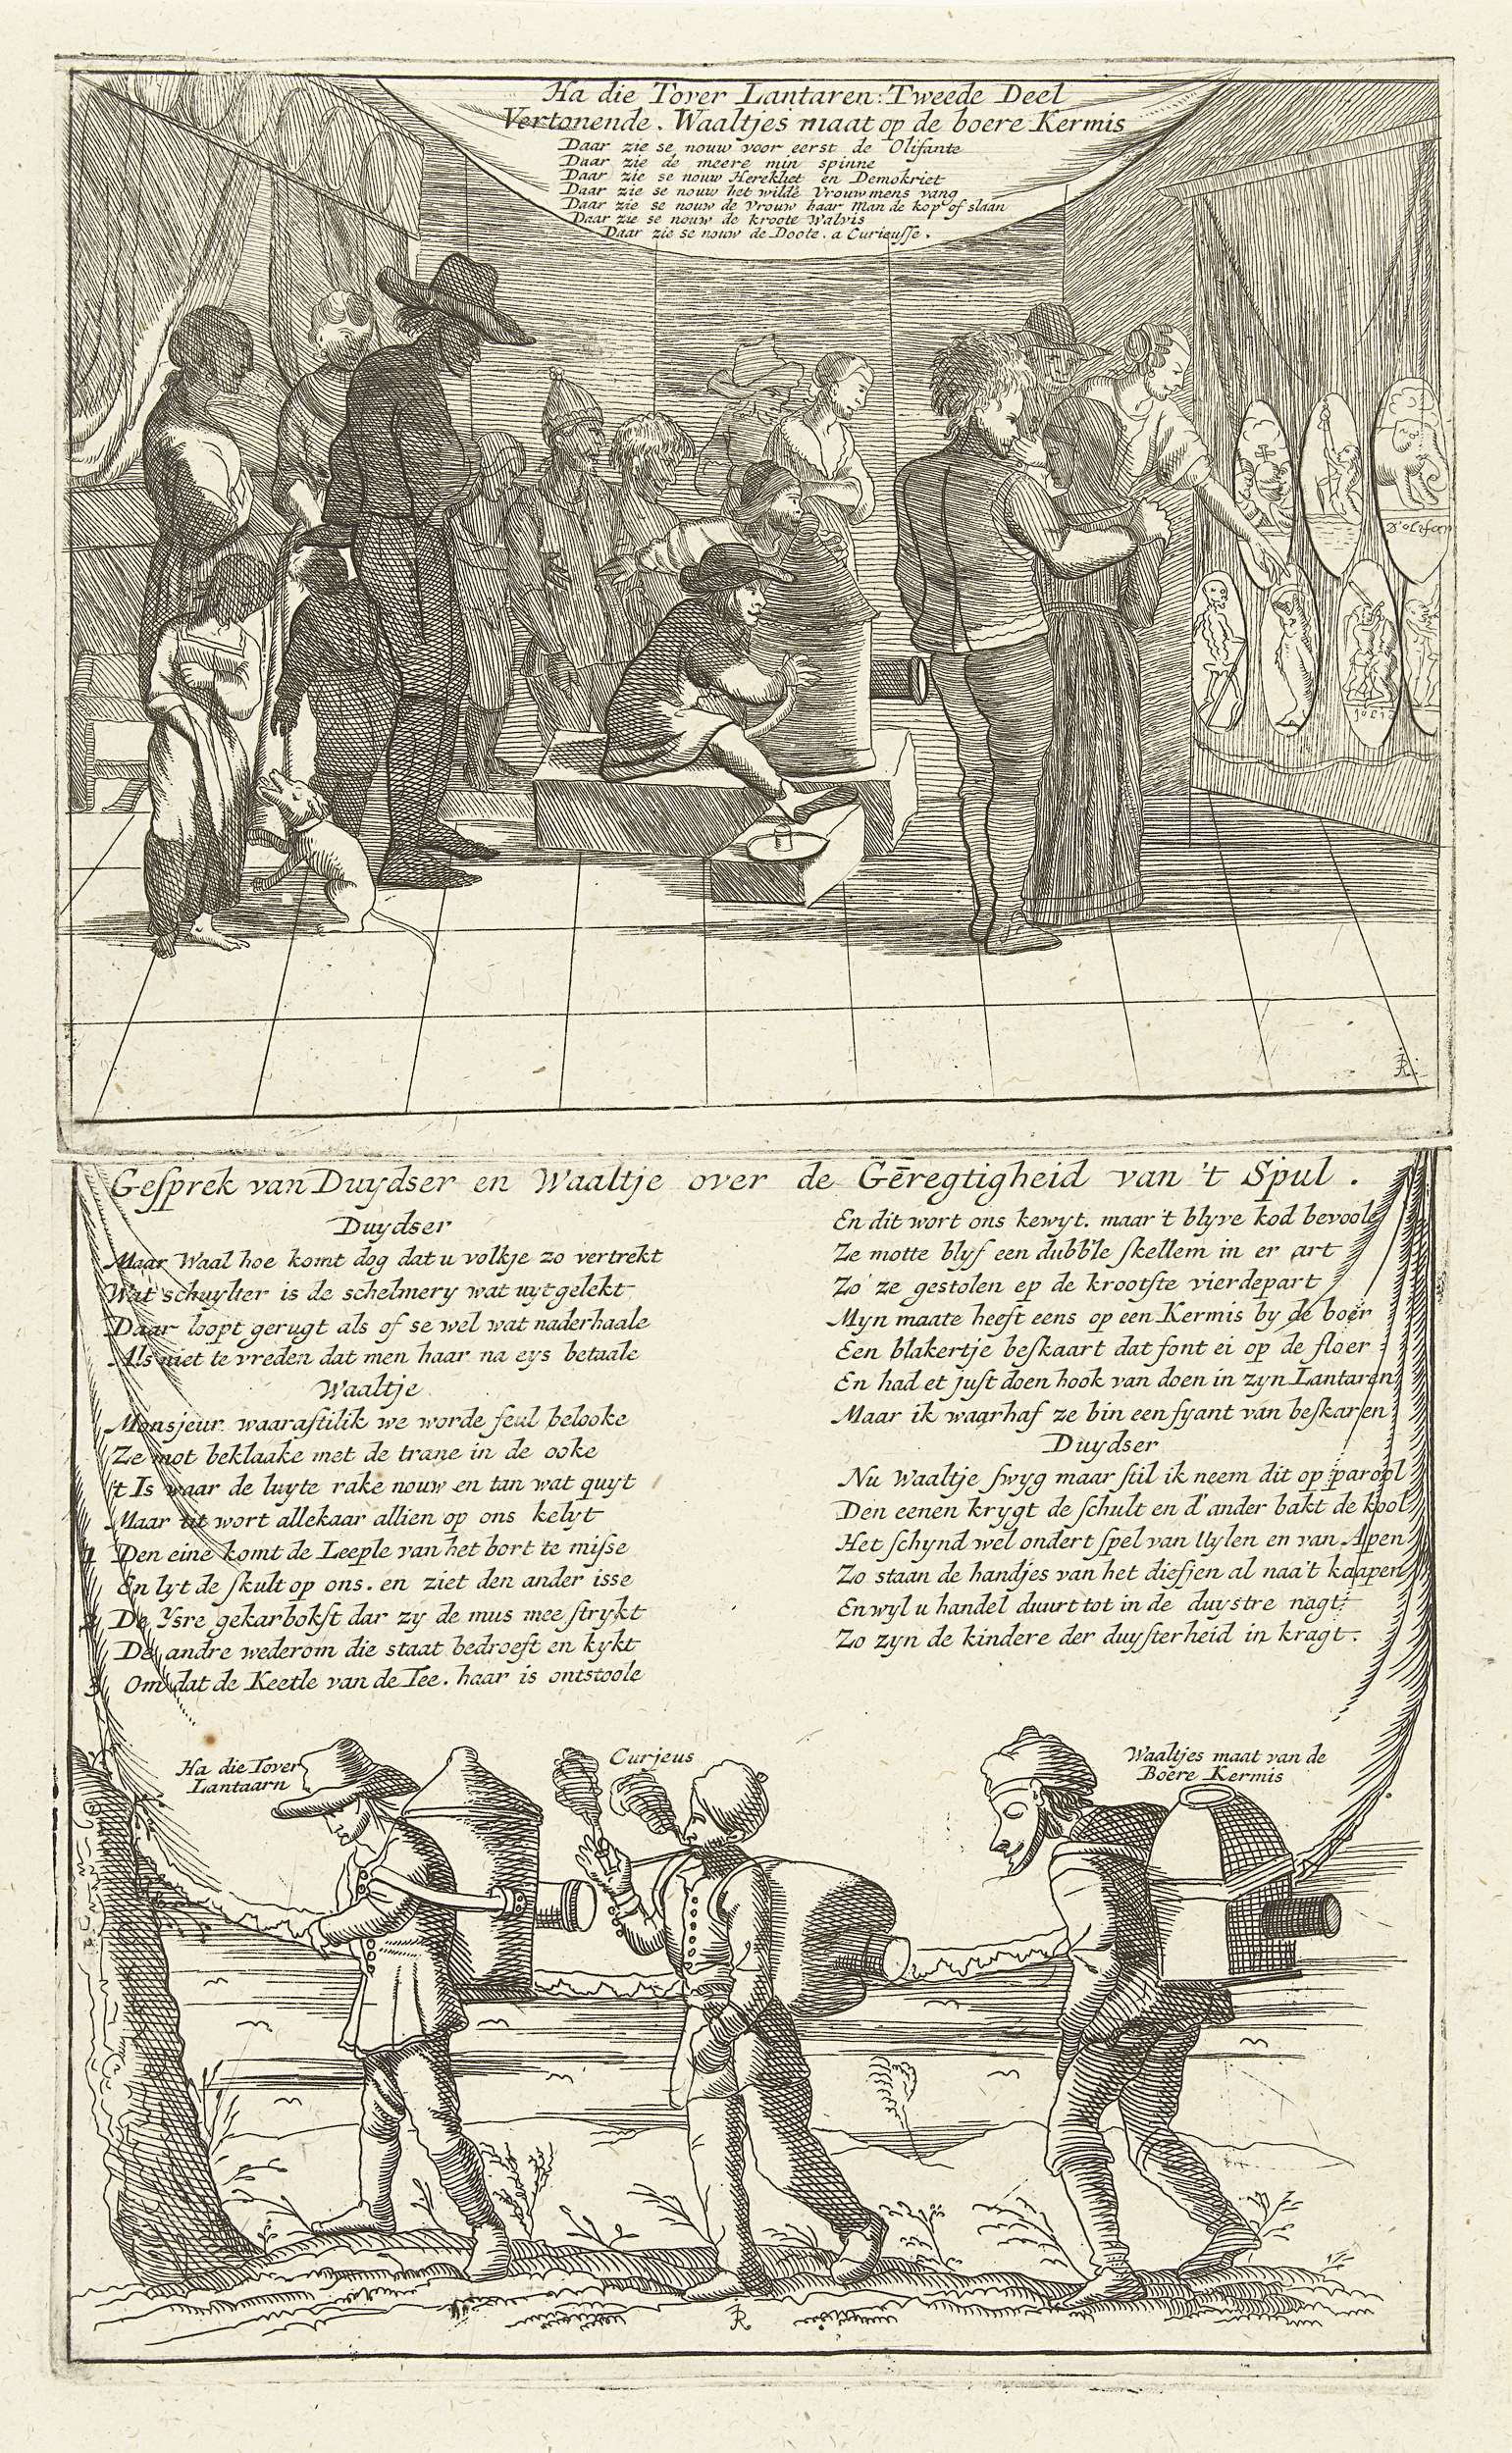 Ha die Tover Lantaren: Tweede Deel
Vertonende. Waaltjes maat op de boere Kermis
Daar zie se nouw voor eerst de Olifante
Daar zie de meere min spinne
Daar zie se nouw Herekliet en Demokriet
Daar zie se nouw het wilde Vrouwmens vang
Daar zie se nouw de Vrouw haar Man de kop of slaan
Daar zie se nouw de kroote Walvis
Daar zie se nouw de Doote. a Curieuſſe.
D'olifan
Geſprek van Duydser en Waaltje over de Gēregtigheid van 't Spul.
Duydser
Maar Waal hoe komt dog dat u volkje zo vertrekt
Wat schuylter is de schelmery wat uytgelekt
Daar loopt gerugt als of se wel wat naderhaale
Als niet te vreden dat men haar na eys betaale
Waaltje
Monsjeur waaraſtilik we worde feul belooke
Ze mot beklaake met de trane in de ooke
't Is waar de luyte rake nouw en tan wat quyt
Maar tit wort allekaar allien op ons kelyt
1 Den eine komt de Leeple van het bort te miſse
En lyt de ſkult op ons. en ziet den ander isse
2 De Ysre gekarbokſt dar zy de mus mee ſtrykt
De andre wederom die staat bedroeft en kykt
3 Om dat de Keetle van de Tee. haar is ontstoole
En dit wort ons kewyt. maar 't blyve kod bevoole
Ze motte blyf een dubb'le ſkellem in er art
Zo ze gestolen ep de krootſte vierdepart
Myn maate heeft eens op een Kermis by de boer
Een blakertje beſkaart dat font ei op de floer
En had et juſt doen hook van doen in zyn Lantaren
Maar ik waarhaf ze bin een fyant van beſkaren
Duydser
Nu Waaltje ſwyg maar ſtil ik neem dit op parool
Den eenen krygt de ſchult en d' ander bakt de kool
Het ſchynd wel ondert ſpel van Uylen en van Apen
Zo staan de handjes van het diefjen al naa't kaapen
En wyl u handel duurt tot in de duystre nagt
Zo zyn de kindere der duyſterheid in kragt.
Ha die Tover
Lantaarn
Curjeus
Waaltjes maat van de
Boere Kermis